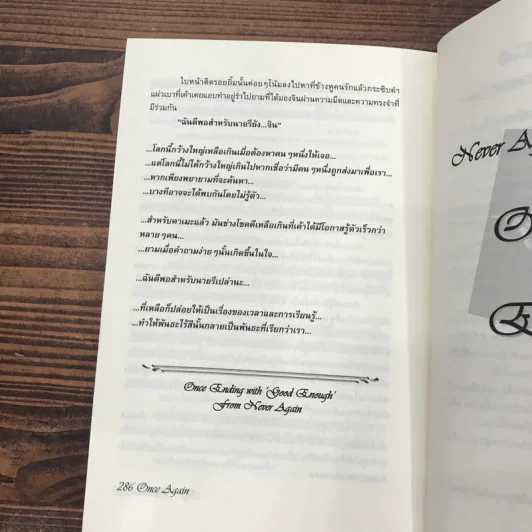 ใบหน้าติดรอยยิ้มนั้นค่อย ๆโน้มลงไปหาที่ข้างหูคนรักแล้วกระซิบคำ
แผ่วเบาที่เค้าเคยแอบทำอยู่ร่ำไปยามที่ได้มองจินผ่านความมืดและความทรงจำที่
มีร่วมกัน
"ฉันดีพอสำหรับนายรึยัง...จิน"
...โลกนี้กว้างใหญ่เหลือเกินเมื่อต้องหาคน ๆหนึ่งให้เจอ...
...แต่โลกนี้ไม่ได้กว้างใหญ่เกินไปหากเชื่อว่ามีคน ๆหนึ่งถูกส่งมาเพื่อเรา...
...หากเพียงพยายามที่จะค้นหา...
...บางทีอาจจะได้พบกันโดยไม่รู้ตัว...
...สำหรับคาเมะแล้ว มันช่างโชคดีเหลือเกินที่เค้าได้มีโอกาสรู้ตัวเร็วกว่า
หลาย ๆคน...
...ยามเมื่อคำถามง่าย ๆนั้นเกิดขึ้นในใจ...
...ฉันดีพอสำหรับนายรึเปล่านะ...
...ที่เหลือก็ปล่อยให้เป็นเรื่องของเวลาและการเรียนรู้...
...ทำให้พันธะไร้สีนั้นกลายเป็นพันธะที่เรียกว่าเรา...
Once Ending with 'Good Enough'
From Never Again
286 Once Again
Never